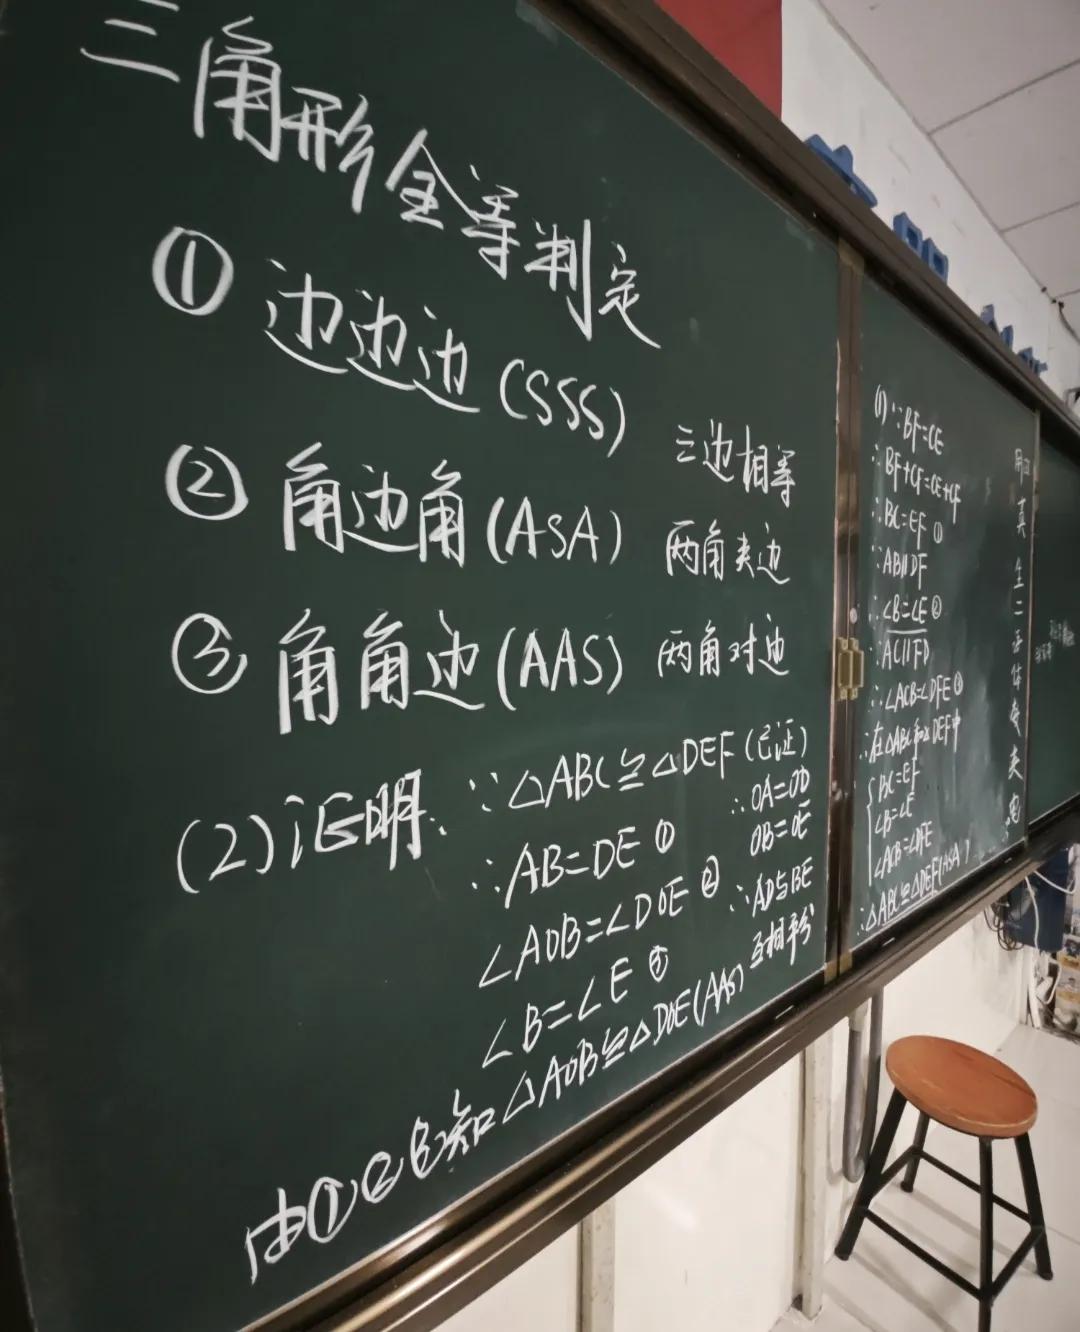 三角形全等判定
① 边边边 (SSS)
三边相等
② 角边角 (ASA) 两角夹边
③ 角角边 (AAS) 两角对边
(2) 证明: ∵△ABC≌△DEF (已证)
∴AB=DE ①
∠AOB=∠DOE ②
∠B=∠E ③
由①②③知△AOB≌△DOE(AAS)
∴OA=OD
OB=OE
∴AD与BE
互相平分
(1) ∵BF=CE
∴BF+CF=CE+CF
∴BC=EF ①
∵AB∥DF
∴∠B=∠E ②
∵AC∥FD
∴∠ACB=∠DFE ③
∴在△ABC和△DEF中
BC=EF
∠B=∠E
∠ACB=∠DFE
∴△ABC≌△DEF(ASA)